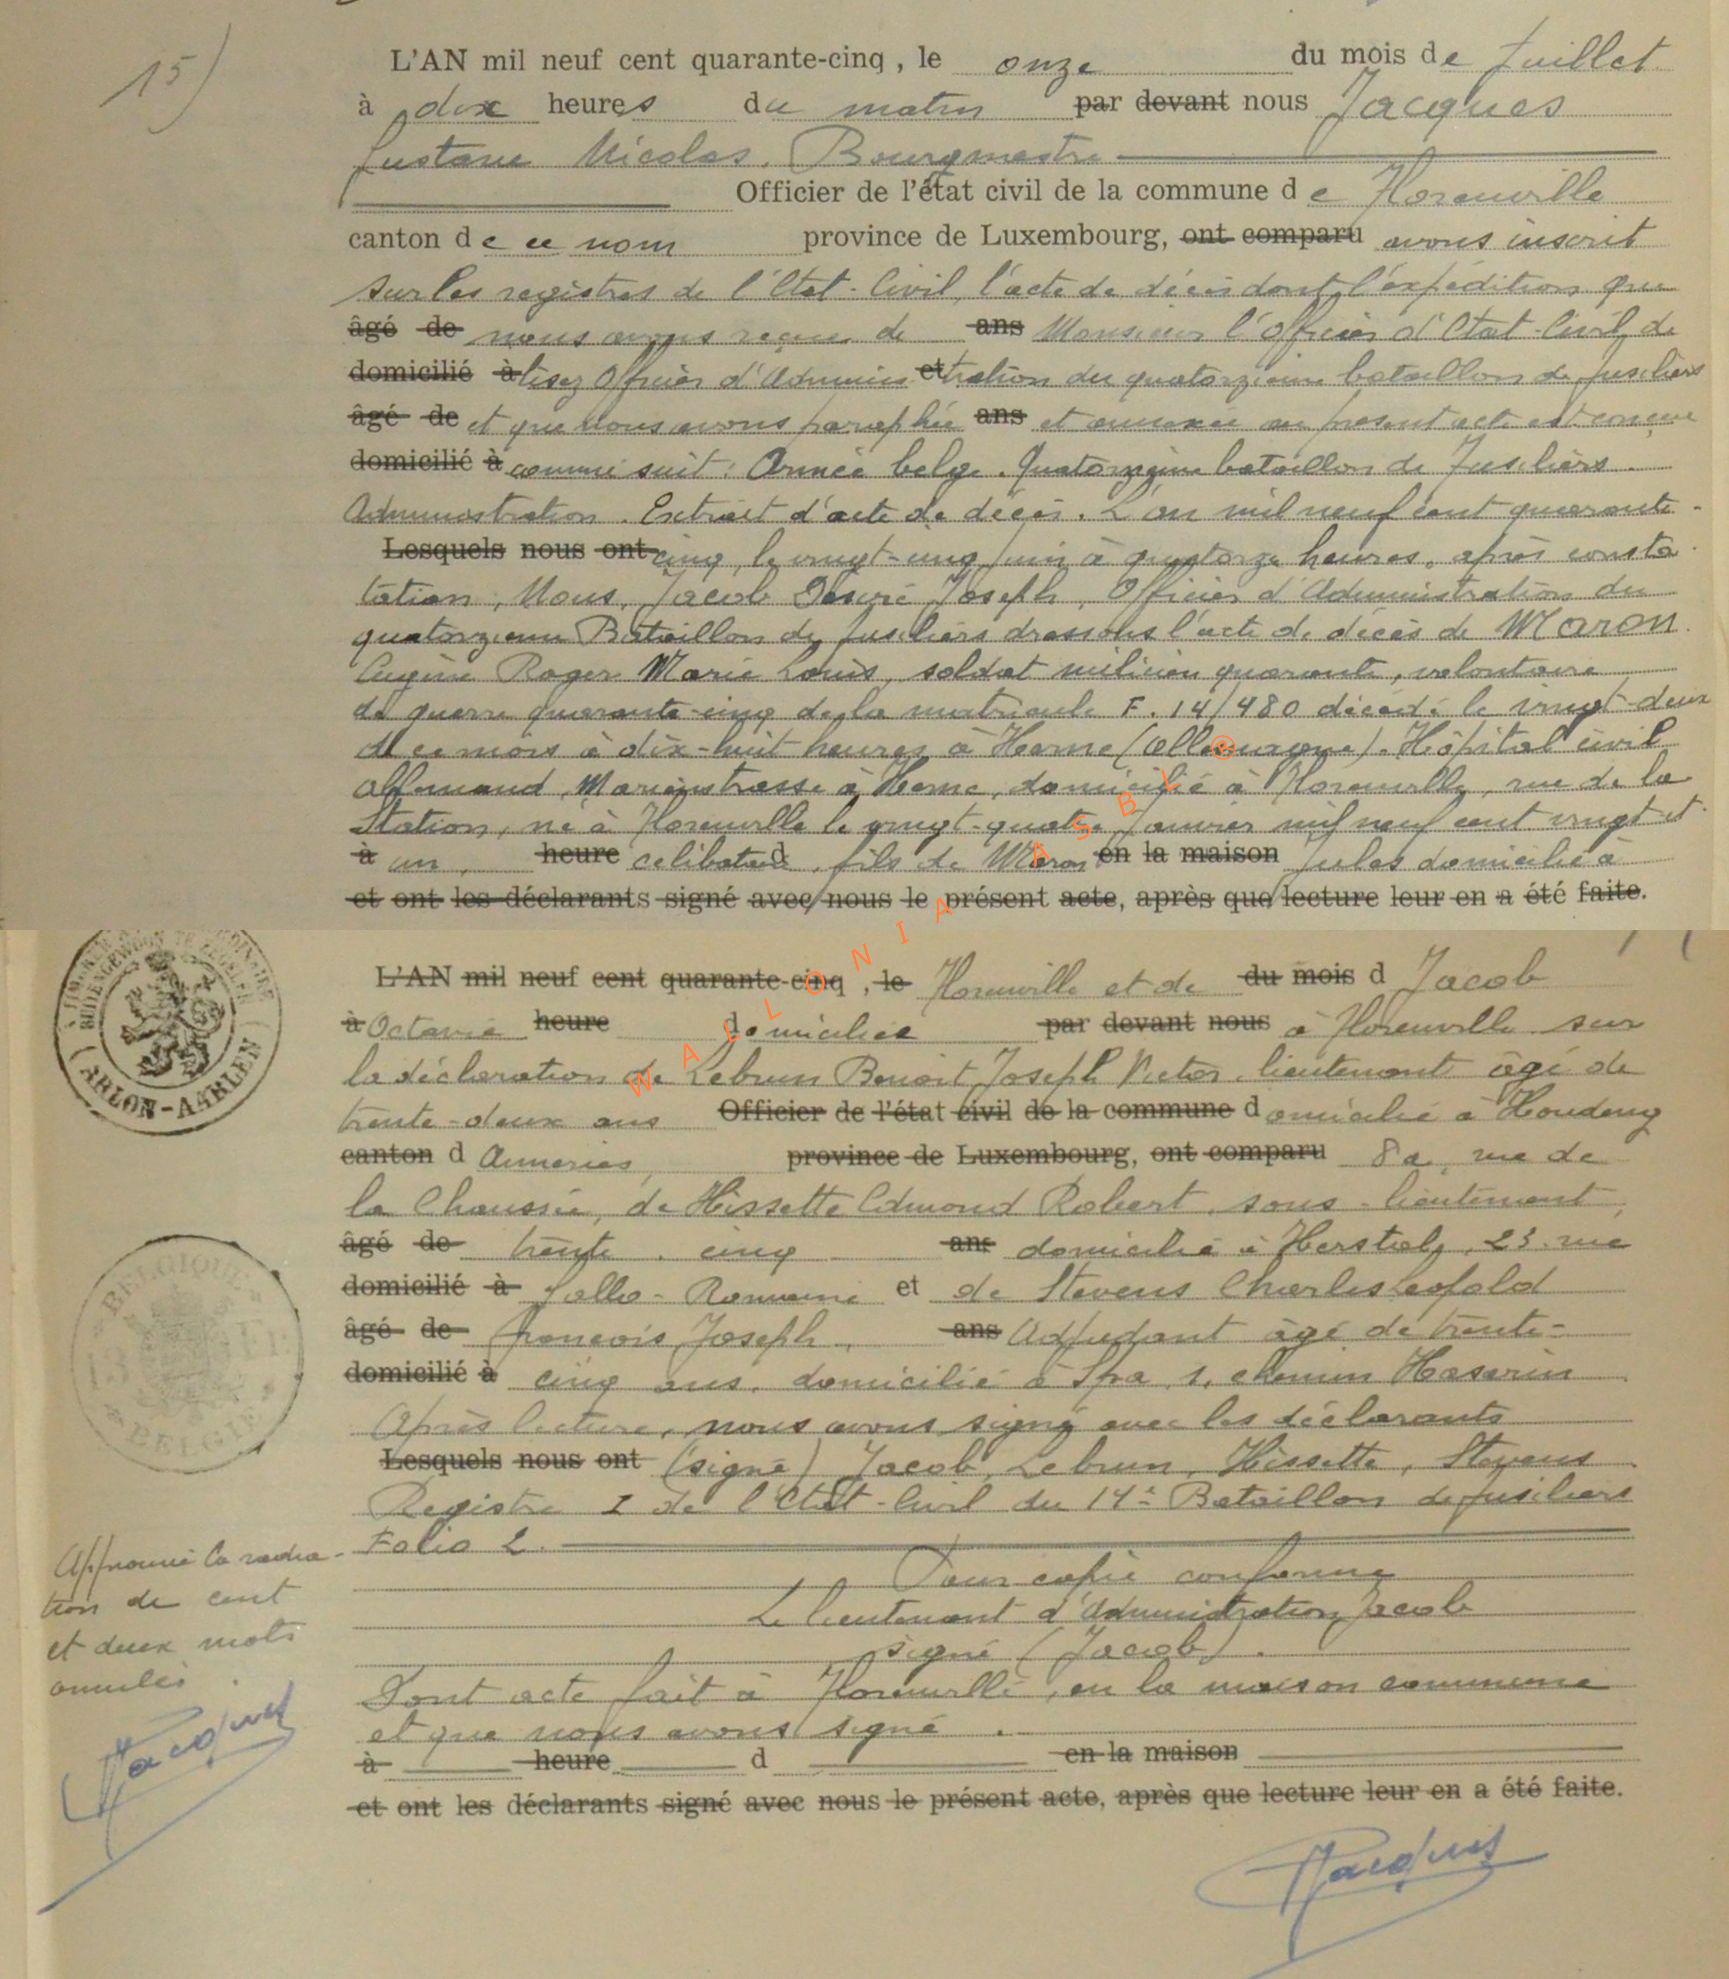 15)
L'AN mil neuf cent quarante-cinq, le onze du mois de Juillet
à dix heures du matin par devant nous Jacques
Gustave Nicolas, Bourgmestre
Officier de l'état civil de la commune de Florenville
canton de ce nom province de Luxembourg, ont comparu avons inscrit
sur les registres de l'Etat-Civil, l'acte de décès dont l'expédition que
âgé de nous avons reçue de ans Monsieur l'Officier d'Etat-Civil, de
domicilié à lisez Officier d'Adminis et tration du quatorzième bataillon de fusiliers
âgé de et que nous avons paraphée ans et annexée au présent acte est conçue
domicilié à comme suit : Armée belge. Quatorzième bataillon de Fusiliers.
Administration. Extrait d'acte de décès. L'an mil neuf cent quarante-
Lesquels nous ont cinq, le vingt-cinq juin à quatorze heures, après consta-
tation, Nous, Jacob Désiré Joseph, Officier d'Administration du
quatorzième Bataillon de fusiliers dressons l'acte de décès de Maron
Eugène Roger Marie Louis, soldat milicien quarante, volontaire
de guerre quarante-cinq de la matricule F. 14/480 décédé le vingt-deux
de ce mois à dix-huit heures à Herne (Allemagne). Hôpital civil
allemand, Marienstrasse à Herne, domicilié à Florenville, rue de la
Station, né à Florenville le vingt-quatre Janvier mil neuf cent vingt et
à un, heure célibataire d, fils de Maron en la maison Jules domicilié à
et ont les déclarants signé avec nous le présent acte, après que lecture leur en a été faite.
WALLONIA ASBL ®
TIMBRE
ARLON-AARLEN
L'AN mil neuf cent quarante-cinq, le Florenville et de du mois d Jacob
à Octavie heure domiciliée par devant nous à Florenville sur
la déclaration de Lebrun Benoit Joseph Victor, lieutenant âgé de
trente-deux ans Officier de l'état civil de la commune domicilié à Houdeng
canton d Aimeries, province de Luxembourg, ont comparu 8a, rue de
la Chaussée, de Hissette Edmond Robert, sous-lieutenant,
âgé de trente-cinq ans domicilié à Herstal, 23 rue
domicilié à Gallo-Romaine et de Stevens Charles Léopold
âgé de François Joseph, ans Adjudant âgé de trente-
domicilié à cinq ans, domicilié à Spa, 1, chemin
Après lecture, nous avons signé avec les déclarants
Lesquels nous ont (signé) Jacob, Lebrun, Hissette, Stevens
Registre I de l'Etat-Civil du 14e Bataillon de fusiliers
Folio 2.
Pour copie conforme
Le lieutenant d'Administration Jacob
signé (Jacob).
Dont acte fait à Florenville, en la maison commune
et que nous avons signé.
à heure d en la maison
et ont les déclarants signé avec nous le présent acte, après que lecture leur en a été faite.
BELGIQUE
BELGIE
Approuvé la radia-
tion de cent
et deux mots
annulés
Jacques
Jacques